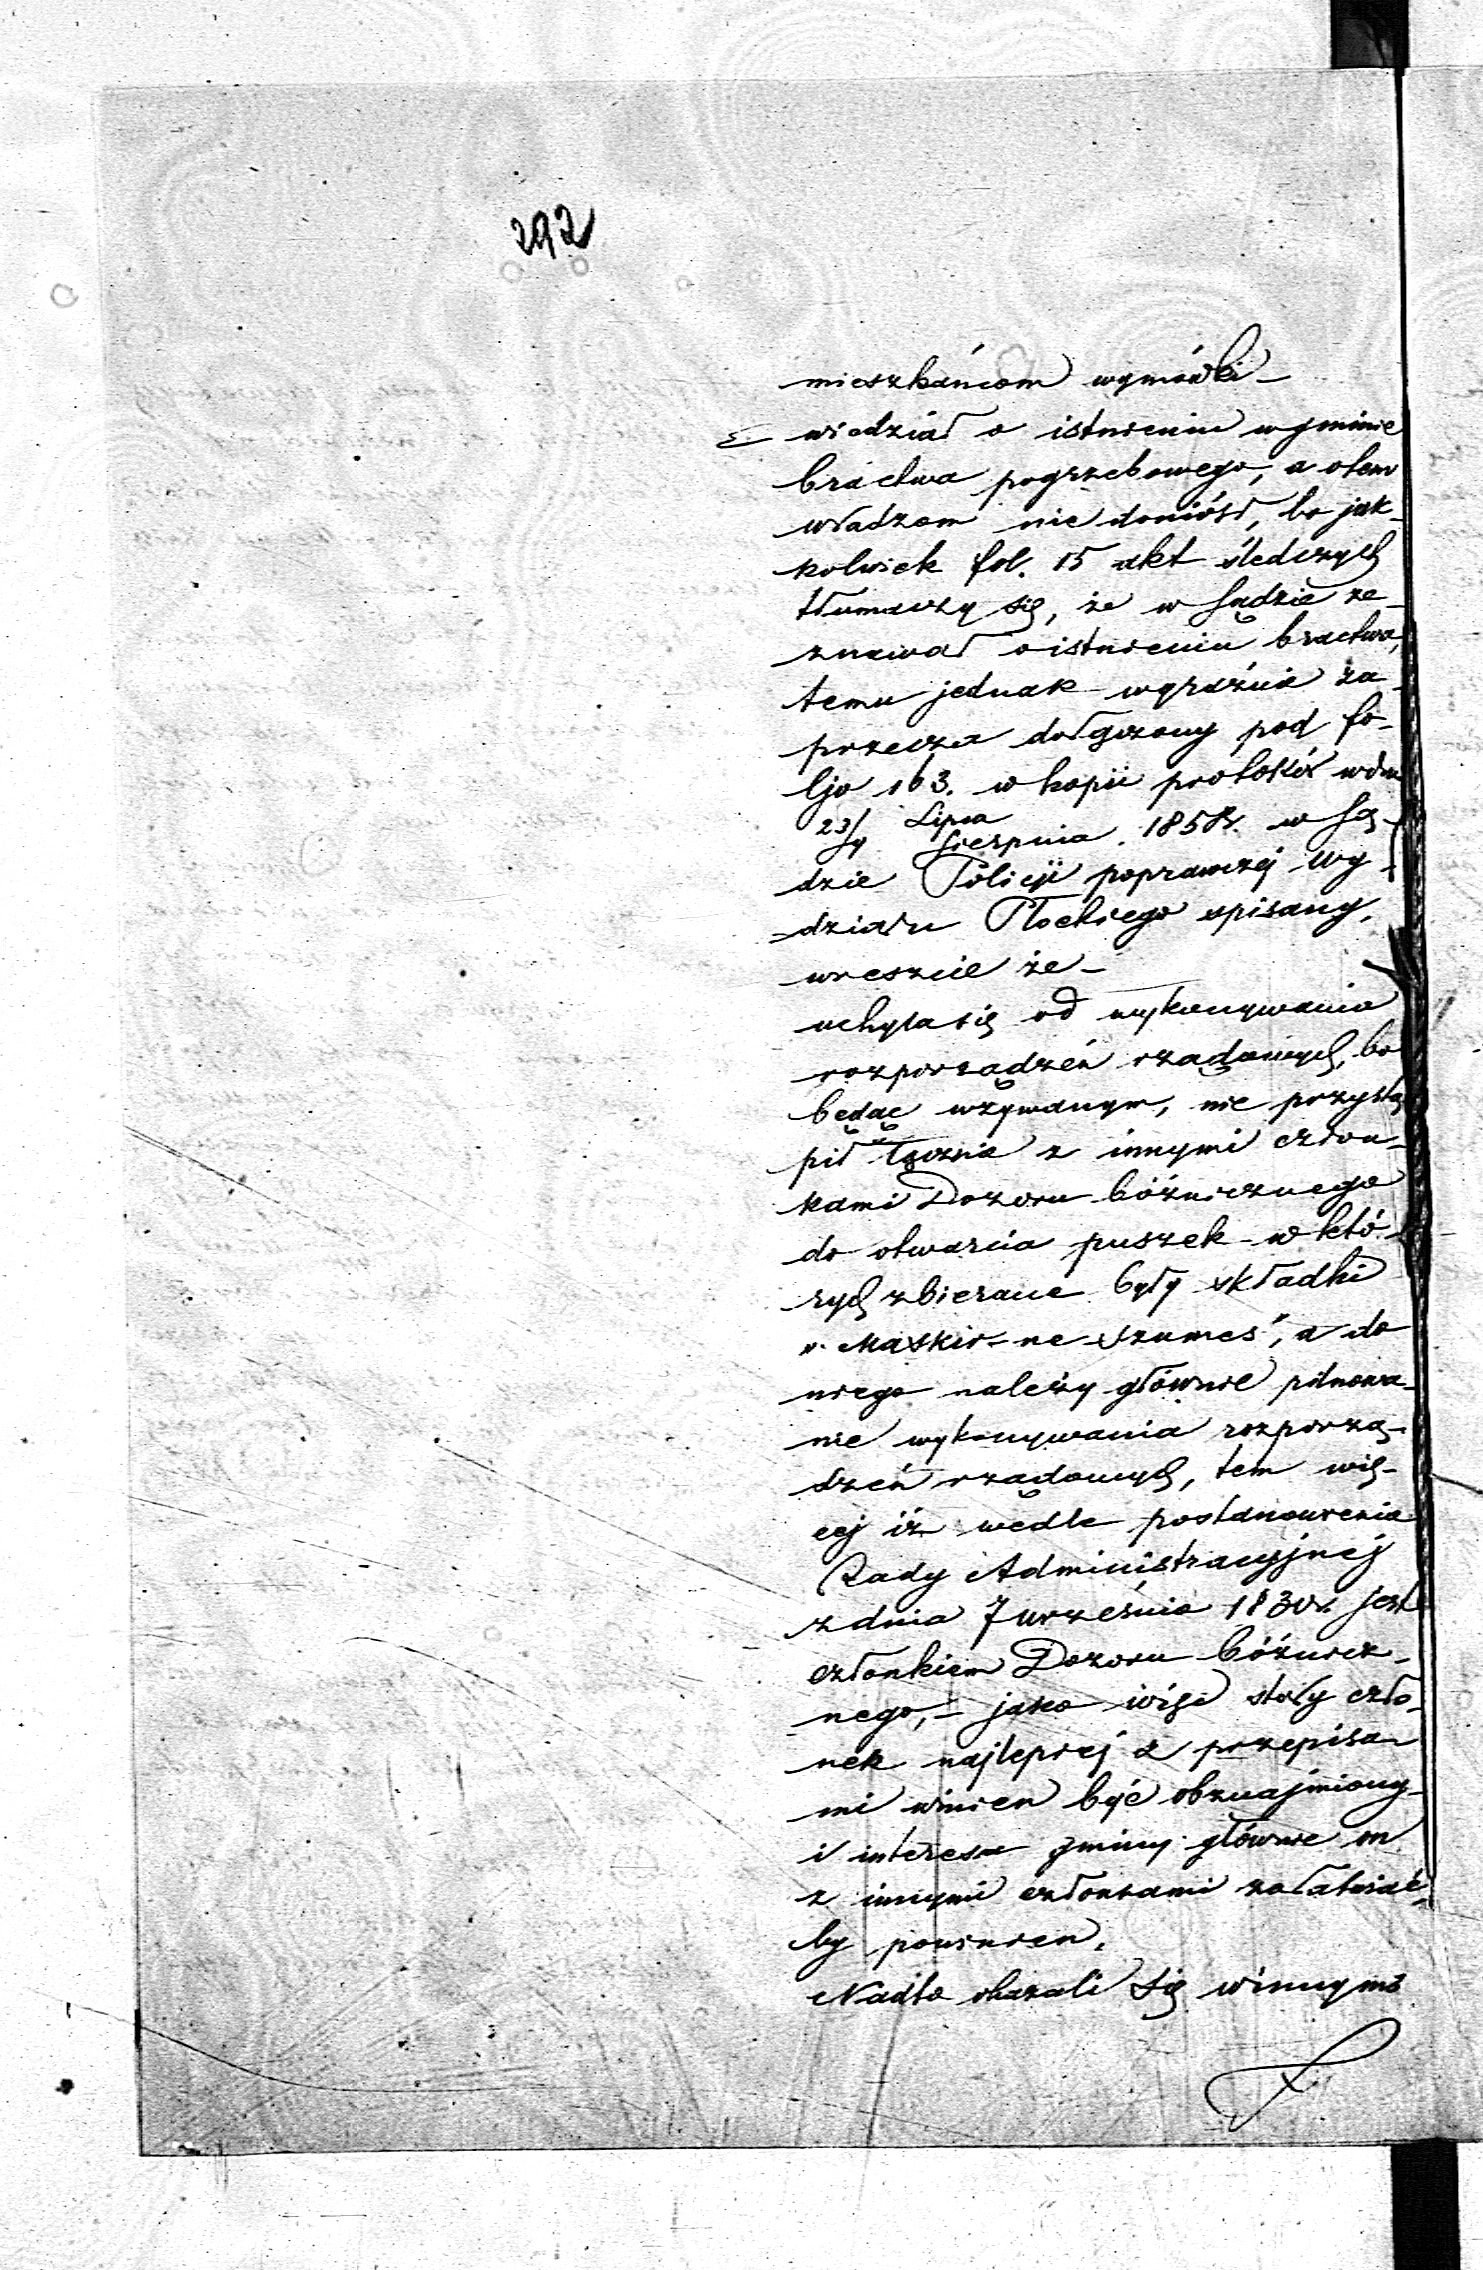 292
mieszkańcom wymówki –
wiedział o istnieniu w gminie
bractwa pogrzebowego, a o tem
władzom nie doniósł, bo jak-
kolwiek fol. 15 akt śledczych
tłumaczy się, że w Sądzie ze-
znawał o istnieniu bractwa,
temu jednak wyraźnie za-
przecza dołączony pod fo-
ljo 163. w kopii protokół w dniu
23/4 Lipca/Sierpnia 1858 r. w Są-
dzie Policji poprawczej Wy-
działu Płockiego spisany,
wreszcie że –
uchyla się od wykonywania
rozporządzeń rządowych, bo
będąc wzywanym, nie przystą-
pił łącznie z innymi człon-
kami Dozoru bóźnicznego
do otwarcia puszek w któ-
rych zbierane były składki
„Maskir-ne-Szumes", a do
niego należy głównie pilnowa-
nie wykonywania rozporzą-
dzeń rządowych, tem wię-
cej iż wedle postanowienia
Rady Administracyjnej
z dnia 7 września 1830 r. jest
członkiem Dozoru bóźnicz-
nego, – jako więc stały czło-
nek najlepiej z przepisa-
mi winien być obznajmiony
i interesa gminy głównie on
z innymi członkami załatwiać
by powinien.
Nadto okazali się winnymi